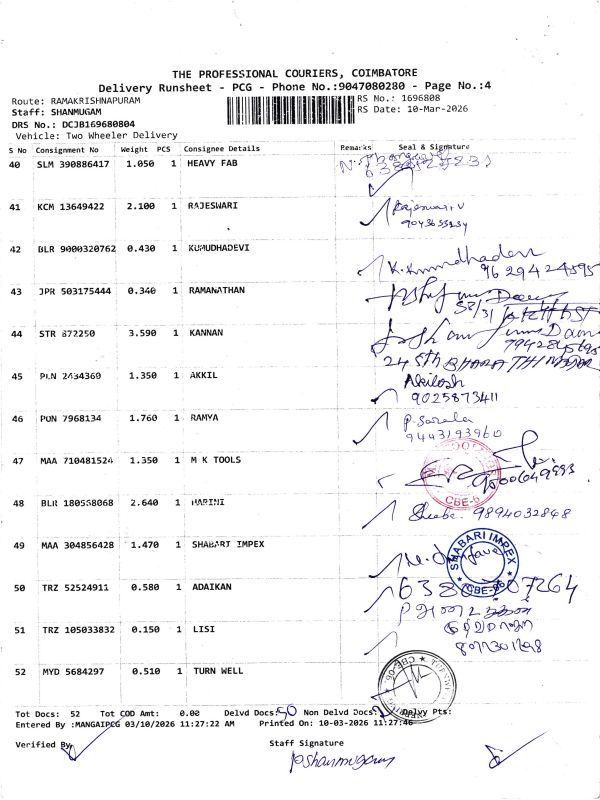 THE PROFESSIONAL COURIERS, COIMBATORE
Delivery Runsheet - PCG - Phone No.:9047080280 - Page No.:4
Route: RAMAKRISHNAPURAM
RS No.: 1696808
Staff: SHANMUGAM
RS Date: 10-Mar-2026
DRS No.: DCJB169680804
Vehicle: Two Wheeler Delivery
S No Consignment No Weight PCS Consignee Details Remarks Seal & Signature
40 SLM 390886417 1.050 1 HEAVY FAB
41 KCM 13649422 2.100 1 RAJESWARI
Rajeswari V
9043653234
42 BLR 9000320762 0.430 1 KUMUDHADEVI
K. Kumudhadevi
9629424595
43 JPR 503175444 0.340 1 RAMANATHAN
44 STR 872250 3.590 1 KANNAN
24 5th BHARATHI NAGAR
45 PLN 2434360 1.350 1 AKKIL
Akilosh
9025873411
46 PON 7968134 1.760 1 RAMYA
P. Sarala
9443193960
47 MAA 710481524 1.350 1 M K TOOLS
CBE-6
48 BLR 180558068 2.640 1 HARINI
Sheeba. 9894032848
49 MAA 304856428 1.470 1 SHABARI IMPEX
SHABARI IMPEX
CBE-06
50 TRZ 52524911 0.580 1 ADAIKAN
51 TRZ 105033832 0.150 1 LISI
52 MYD 5684297 0.510 1 TURN WELL
CBE-06
Tot Docs: 52 Tot COD Amt: 0.00 Delvd Docs: 50 Non Delvd Docs: 2 Delvy Pts:
Entered By :MANGAIPCG 03/10/2026 11:27:22 AM Printed On: 10-03-2026 11:27:46
Verified By
Staff Signature
P Shanmugam